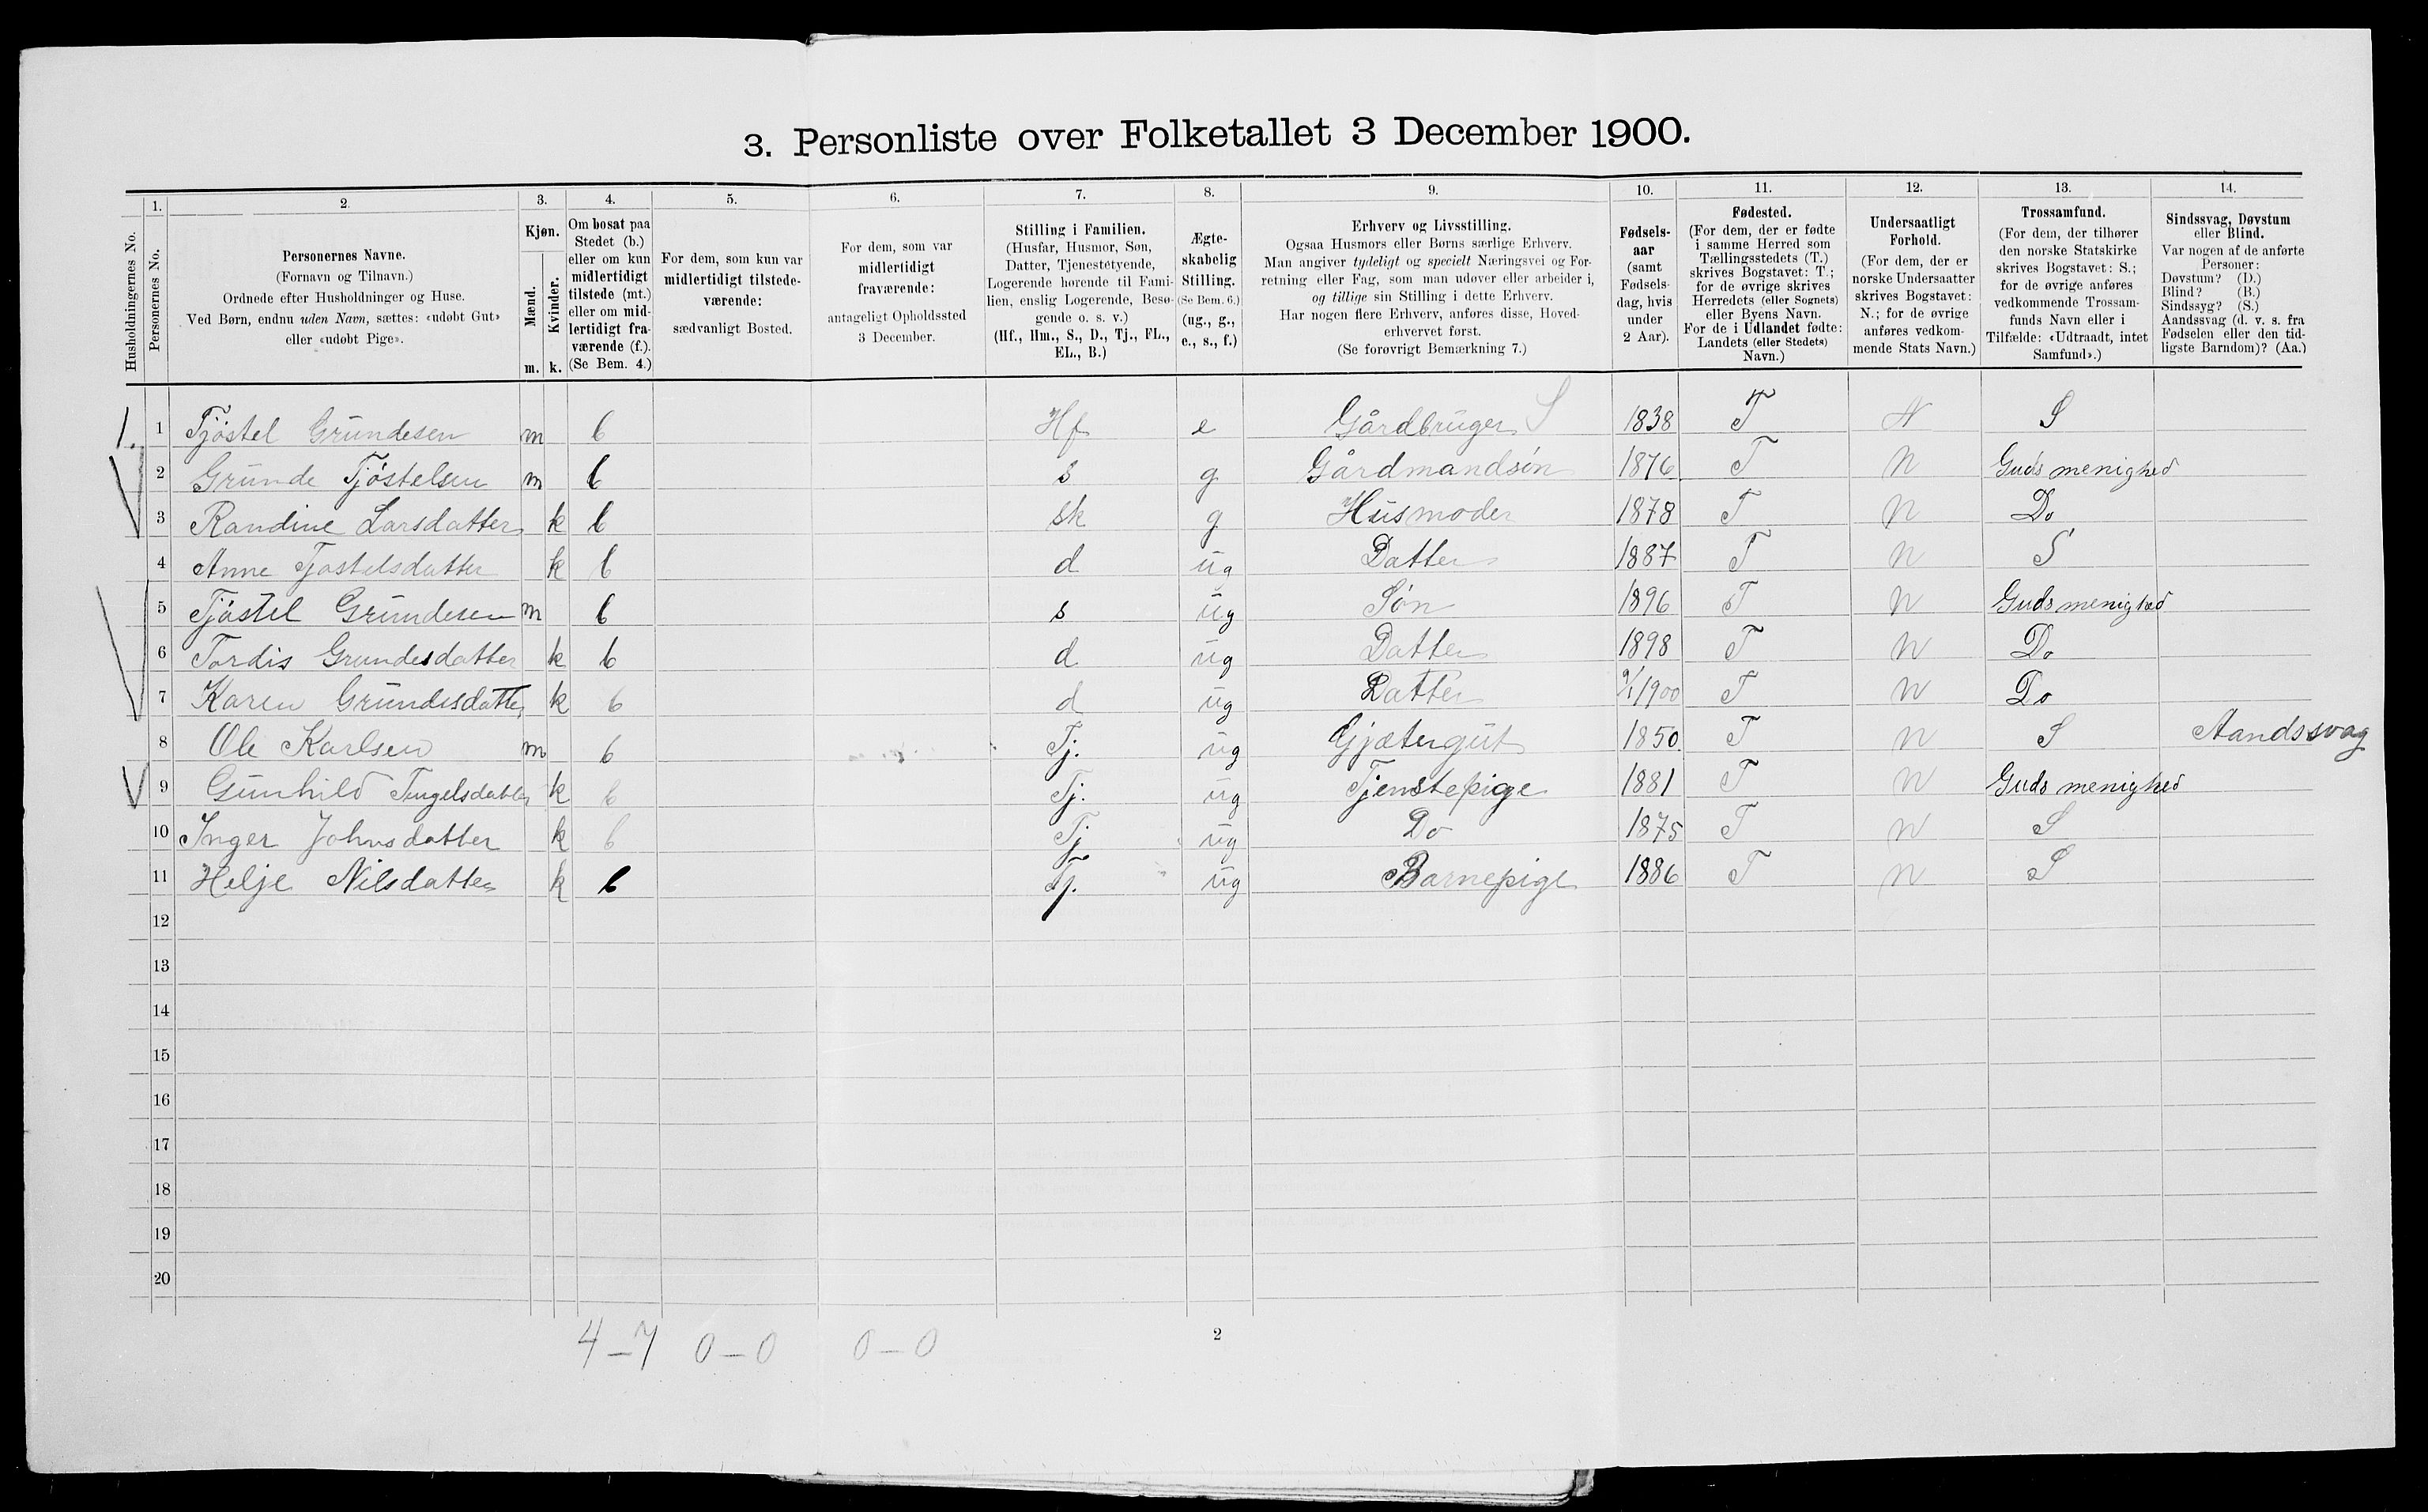 3. Personliste over Folketallet 3 December 1900.
1. 2. 3. 4. 5. 6. 7. 8. 9. 10. 11. 12. 13. 14.
Husholdningernes No.
Personernes No.
Personernes Navne.
(Fornavn og Tilnavn.)
Ordnede efter Husholdninger og Huse.
Ved Børn, endnu uden Navn, sættes: «udøbt Gut»
eller «udøbt Pige».
Kjøn.
Mænd.
Kvinder.
m. k.
Om bosat paa
Stedet (b.)
eller om kun
midlertidigt
tilstede (mt.)
eller om mid-
lertidigt fra-
værende (f.).
(Se Bem. 4.)
For dem, som kun var
midlertidigt tilstede-
værende:
sædvanligt Bosted.
For dem, som var
midlertidigt
fraværende:
antageligt Opholdssted
3 December.
Stilling i Familien.
(Husfar, Husmor, Søn,
Datter, Tjenestetyende,
Logerende hørende til Fami-
lien, enslig Logerende, Besø-
gende o. s. v.)
(Hf., Hm., S., D., Tj., FL.,
EL., B.)
Ægte-
skabelig
Stilling.
(Se Bem. 6.)
(ug., g.,
e., s., f.)
Erhverv og Livsstilling.
Ogsaa Husmors eller Børns særlige Erhverv.
Man angiver tydeligt og specielt Næringsvei og For-
retning eller Fag, som man udøver eller arbeider i,
og tillige sin Stilling i dette Erhverv.
Har nogen flere Erhverv, anføres disse, Hoved-
erhvervet først.
(Se forøvrigt Bemærkning 7.)
Fødsels-
aar
(samt
Fødsels-
dag, hvis
under
2 Aar).
Fødested.
(For dem, der er fødte
i samme Herred som
Tællingsstedets (T.)
skrives Bogstavet: T.;
for de øvrige skrives
Herredets (eller Sognets)
eller Byens Navn.
For de i Udlandet fødte:
Landets (eller Stedets)
Navn.)
Undersaatligt
Forhold.
(For dem, der er
norske Undersaatter
skrives Bogstavet:
N.; for de øvrige
anføres vedkom-
mende Stats Navn.)
Trossamfund.
(For dem, der tilhører
den norske Statskirke
skrives Bogstavet: S.;
for de øvrige anføres
vedkommende Trossam-
funds Navn eller i
Tilfælde: «Udtraadt, intet
Samfund».)
Sindssvag, Døvstum
eller Blind.
Var nogen af de anførte
Personer:
Døvstum? (D.)
Blind? (B.)
Sindssyg? (S.)
Aandssvag (d. v. s. fra
Fødselen eller den tid-
ligste Barndom)? (Aa.)
1. 1 Tjøstel Grundesen m b Hf e Gårdbruger S 1838 T N S
2 Grunde Tjøstelsen m b s g Gårdmandsøn 1876 T N Guds menighed
3 Randine Larsdatter k b sk g Husmoder 1878 T N Do
4 Anne Tjøstelsdatter k b d ug Datter 1887 T N S
5 Tjøstel Grundesen m b s ug Søn 1896 T N Guds menighed
6 Tordis Grundesdatter k b d ug Datter 1898 T N Do
7 Karen Grundesdatter k b d ug Datter 9/1 1900 T N Do
8 Ole Karlsen m b Tj. ug Gjætergut 1850. T N S Aandssvag
9 Gunhild k b Tj. ug Tjenstepige 1881 T N Guds menighed
10 Inger Johnsdatter k b Tj ug Do 1875 T N S
11 Helje Nilsdatter k b Tj. ug Barnepige 1886 T N S
12
13
14
15
16
17
18
19
20
4-7 0-0 0-0
2